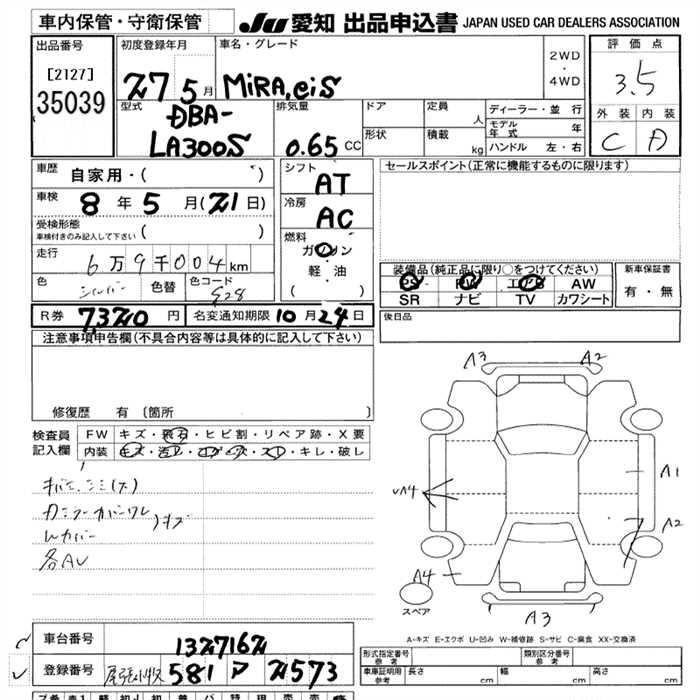 車内保管・守衛保管 JU 愛知 出品申込書 JAPAN USED CAR DEALERS ASSOCIATION
出品番号
[2127]
35039
初度登録年月
27 5月
車名・グレード
MiRA,eiS
2WD
・
4WD
評価点
3.5
外装 内装
C A
型式
DBA-
LA300S
排気量
0.65 CC
ドア
形状
定員
人
積載
kg
ディーラー・並行
モデル年式 年
ハンドル 左・右
車歴
自家用・( )
車検
8年5月(21日)
受検形態
車検付きのみ記入して下さい ( )
走行
6万9千004km
色
シルバー
色替
色コード
S28
シフト
AT
冷房
AC
燃料
ガソリン
・
軽油
( )
セールスポイント(正常に機能するものに限ります)
装備品(純正品に限り○をつけてください)
PS PW エアB AW
SR ナビ TV カワシート
新車保証書
有・無
後日品
R券 7,320円 名変通知期限 10月24日
注意事項申告欄(不具合内容等は具体的に記入して下さい)
修復歴 有 [箇所 ]
検査員
記入欄
FW キズ・飛石・ヒビ割・リペア跡・X要
内装 キズ・汚レ・コゲ・ス・スレ・キレ・破レ
各AU
A3 A2
A1
A2
A4
A4
A3
スペア
A-キズ E-エクボ U-凹み W-補修跡 S-サビ C-腐食 XX-交換済
車台番号
1327162
登録番号
尾張小牧 581 ア 2573
形式指定番号
参考
類別区分番号
参考
車庫証明用
参考
長さ cm 幅 cm 高さ cm